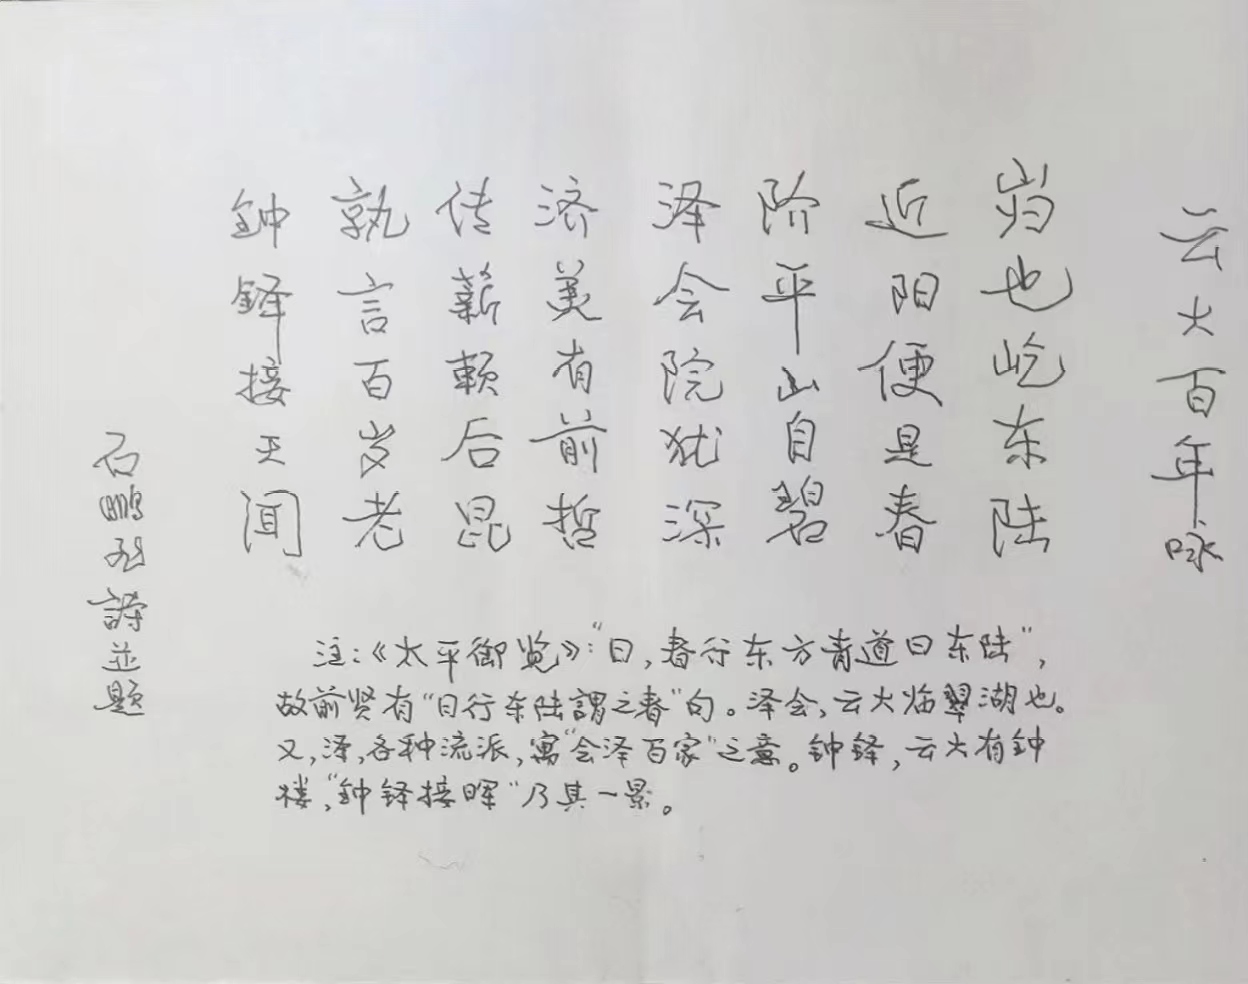 云大百年咏
岿也屹东陆
近阳便是春
阶平山自碧
泽会院犹深
济美有前哲
传薪赖后昆
孰言百岁老
钟铎接天闻
注:《太平御览》:“日,春行东方青道曰东陆”,
故前贤有“日行东陆謂之春”句。泽会,云大临翠湖也。
又,泽,各种流派,寓“会泽百家”之意。钟铎,云大有钟
楼,“钟铎接晖”乃其一景。
石鹏飞詩並题